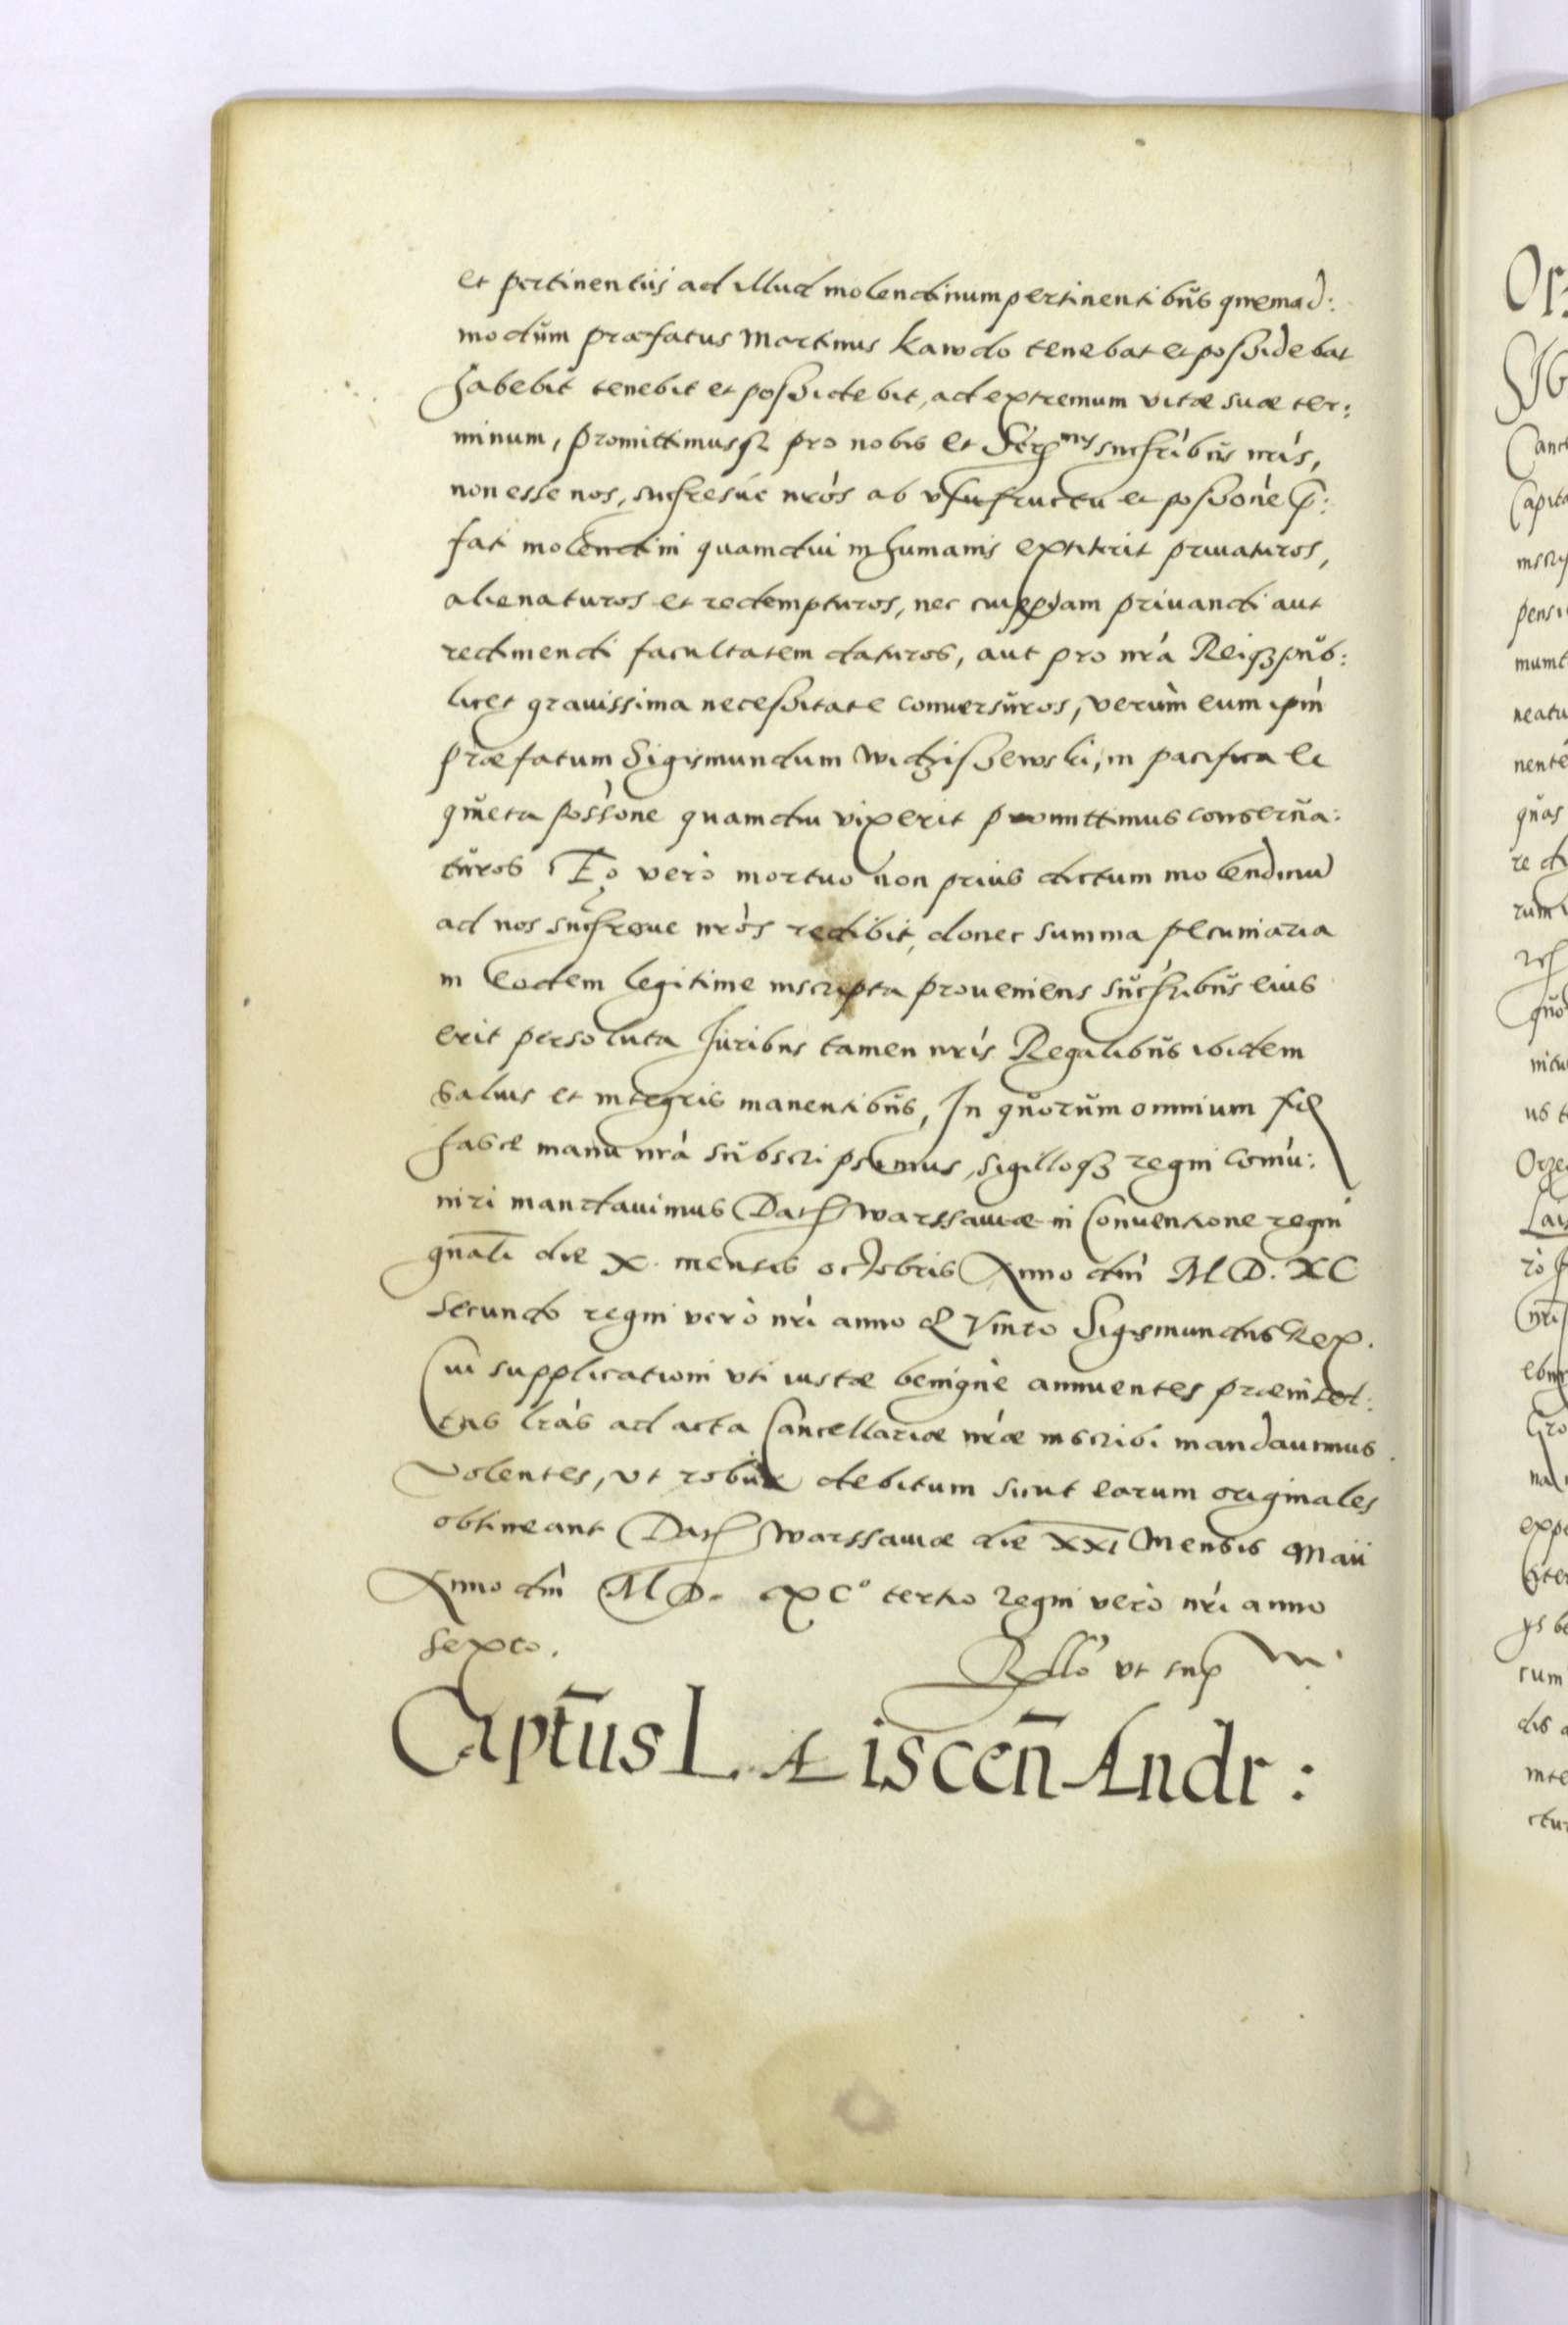 et pertinentiis ad illud molendinum pertinentibus quemad:
modum præfatus Martinus Kawdo tenebat et possidebat
habebit tenebit et possidebit, ad extremum vitæ suæ ter:
minum, promittimusq3 pro nobis et Ser mis sucribus nris,
non esse nos, sucresue nros ab vsufructu et possione p:
fati molendini quamdiu in humanis extiterit priuaturos,
alienaturos et redempturos, nec cuipiam priuandi aut
redimendi facultatem daturos, aut pro nra Reiq3pub:
licæ grauissima necessitate conuersuros, verum eum ipm
præfatum Sigismundum Widzissewski, in pacifica et
quieta possone quamdiu vixerit promittimus conserua:
turos Eo vero mortuo non prius dictum molendinu
ad nos sucresue nros redibit, donec summa pecuniaria
in eodem legitime inscripta proueniens sucribus eius
erit persoluta Juribus tamen nris Regalibus ibidem
saluis et integris manentibus, In quorum omnium fid
hasce manu nra subscripsimus, sigilloq3 regni comu:
niri mandauimus Dat Warssauiæ in Conuentione regni
gnali die X. mensis octobris Anno dni M D. XC
secundo regni vero nri anno Quinto Sigismundus Rex.
Cui supplicationi vti iustæ benigne annuentes præinser:
tas lras ad acta Cancellariæ nræ inscribi mandauimus.
Volentes, vt robur debitum sicut earum originales
obtineant Dat Warssauiæ die XXI Mensis Maii
Anno dni M D. XC° tertio Regni vero nri anno
sexto.
Rllo vt sup
Captus Laiscen Andr: